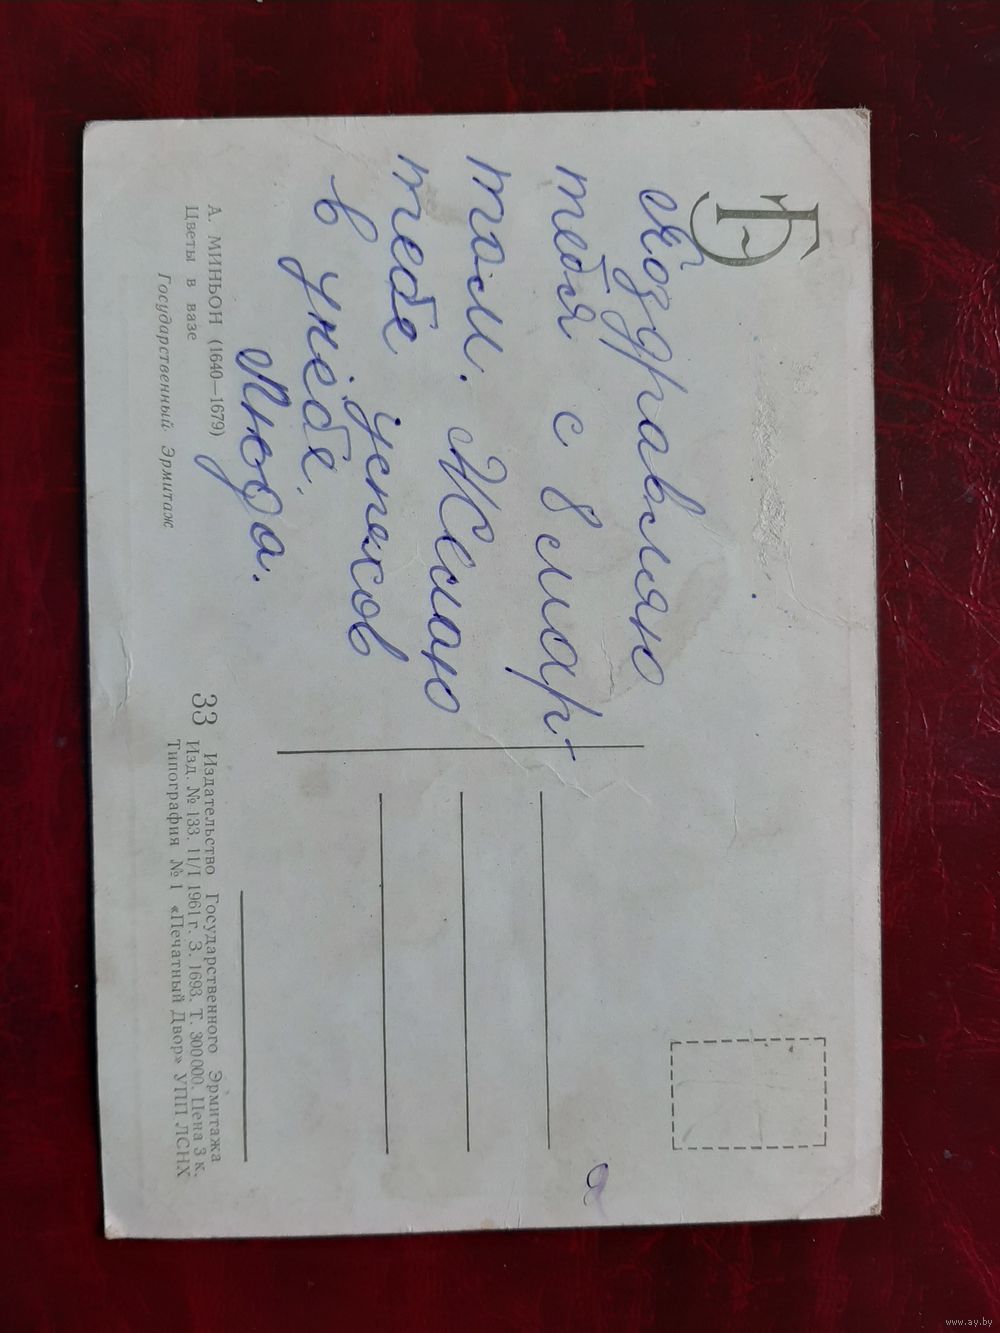 Поздравляю
тебя с 8 мар-
том. Желаю
тебе успехов
в учёбе.
Люда.
А. МИНЬОН (1640—1679)
Цветы в вазе
Государственный Эрмитаж
33 Издательство Государственного Эрмитажа
Изд. № 133. 11/I 1961 г. З. 1693. Т. 300 000. Цена 3 к.
Типография № 1 «Печатный Двор» УПП ЛСНХ
www.ay.by